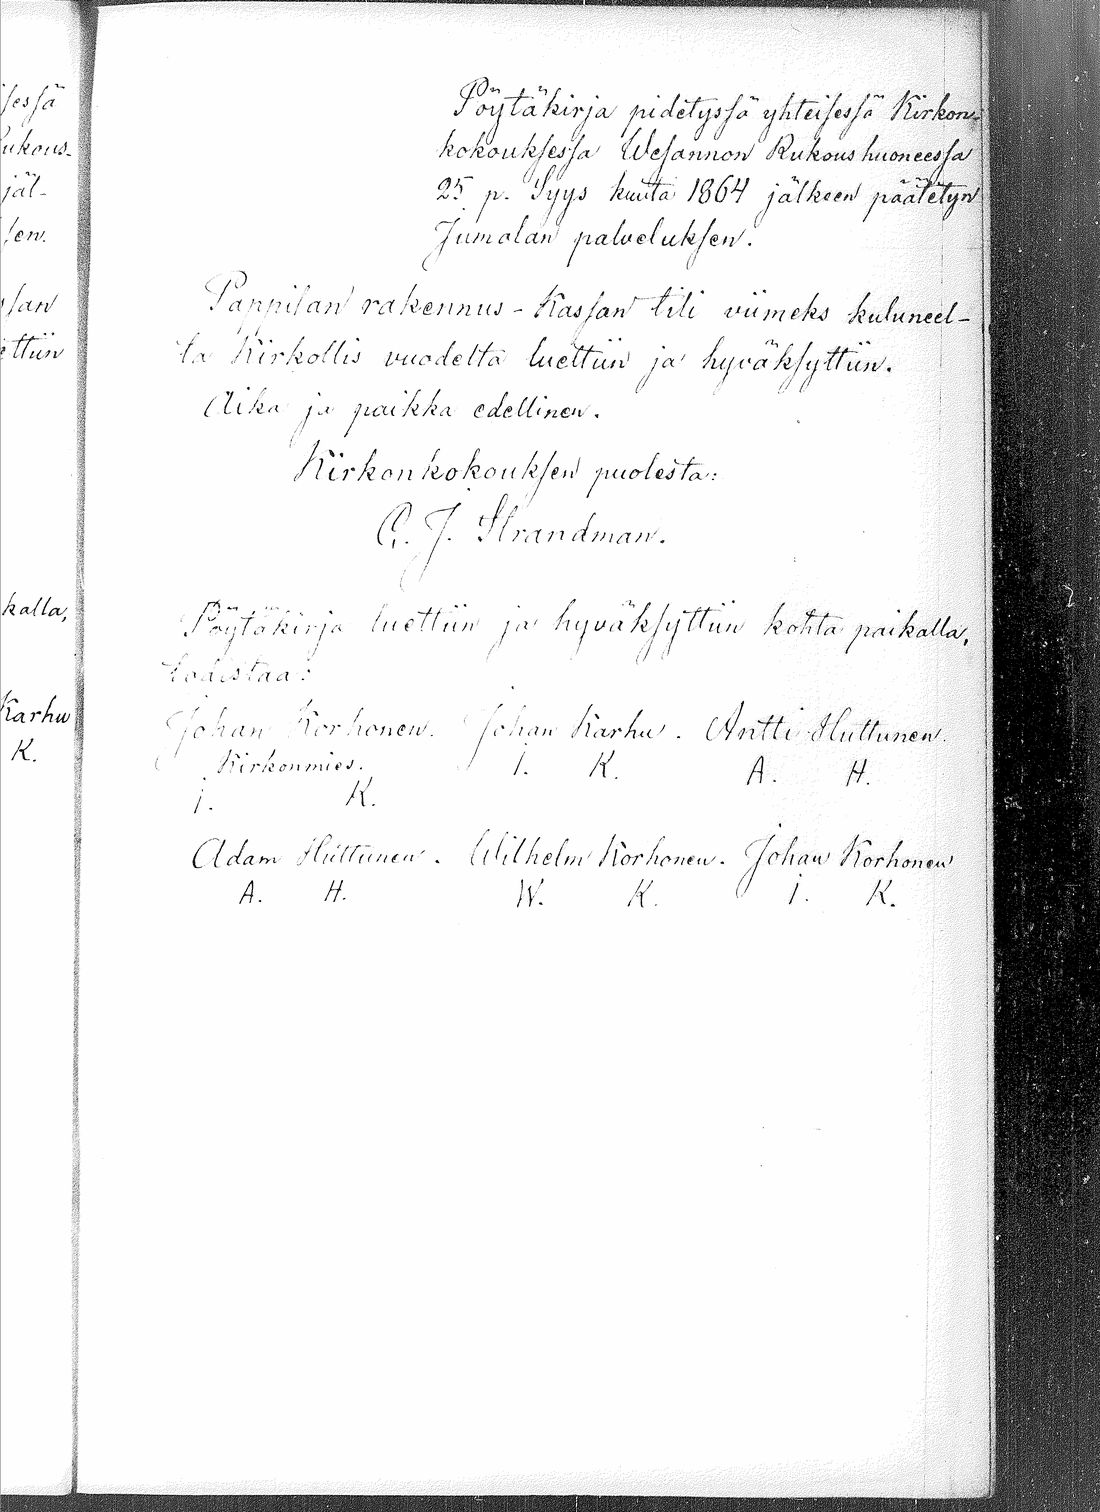 sessä
Rukous-
jäl-
sen.
ssan
ettiin
kalla,
Karhu
K.
Pöytäkirja pidetyssä yhteisessä Kirkon-
kokouksessa Wesannon Rukoushuoneessa
25 p. Syys kuuta 1864 jälkeen päätetyn
Jumalan palveluksen.
Pappilan rakennus-Kassan tili viimeks kuluneel-
ta Kirkollis vuodelta luettiin ja hyväksyttiin.
Aika ja paikka edellinen.
Kirkonkokouksen puolesta:
C. J. Strandman.
Pöytäkirja luettiin ja hyväksyttiin kohta paikalla,
todistaa:
Johan Korhonen. Johan Karhu. Antti Huttunen.
Kirkonmies. I. K. A. H.
I. K.
Adam Huttunen. Wilhelm Korhonen. Johan Korhonen
A. H. W. K. I. K.